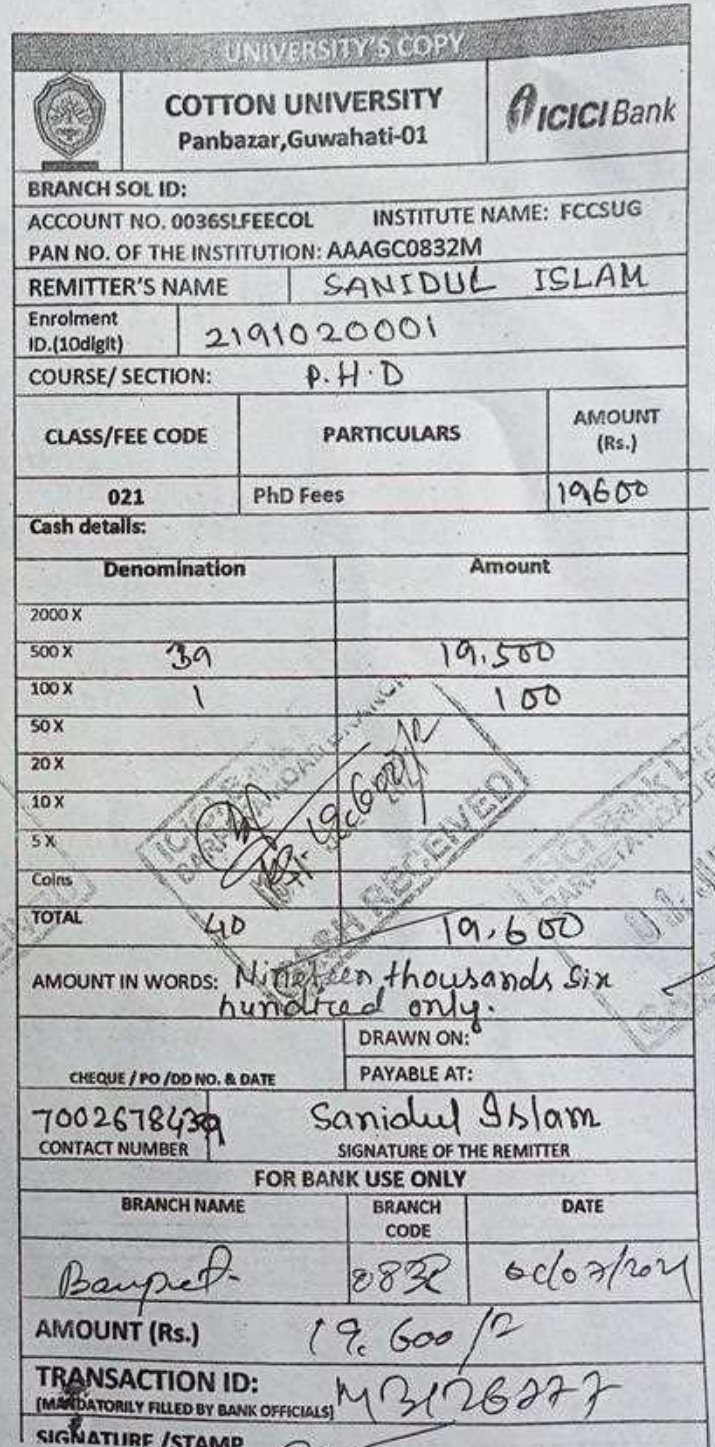 UNIVERSITY'S COPY
COTTON UNIVERSITY
Panbazar,Guwahati-01
ICICI Bank
BRANCH SOL ID:
ACCOUNT NO. 0036SLFEECOL INSTITUTE NAME: FCCSUG
PAN NO. OF THE INSTITUTION: AAAGC0832M
REMITTER'S NAME SANIDUL ISLAM
Enrolment
ID.(10digit) 2191020001
COURSE/ SECTION: P.H.D
CLASS/FEE CODE PARTICULARS AMOUNT
(Rs.)
021 PhD Fees 19,600
Cash details:
Denomination Amount
2000 X
500 X 39 19,500
100 X 1 100
50 X
20 X
10 X
5 X
Coins
CASH RECEIVED
TOTAL 40 19,600
AMOUNT IN WORDS: Nineteen thousands six
hundred only.
DRAWN ON:
CHEQUE / PO /DD NO. & DATE PAYABLE AT:
7002678439 Sanidul Islam
CONTACT NUMBER SIGNATURE OF THE REMITTER
FOR BANK USE ONLY
BRANCH NAME BRANCH
CODE DATE
AMOUNT (Rs.) 19,600/-
TRANSACTION ID:
[MANDATORILY FILLED BY BANK OFFICIALS]
SIGNATURE /STAMP